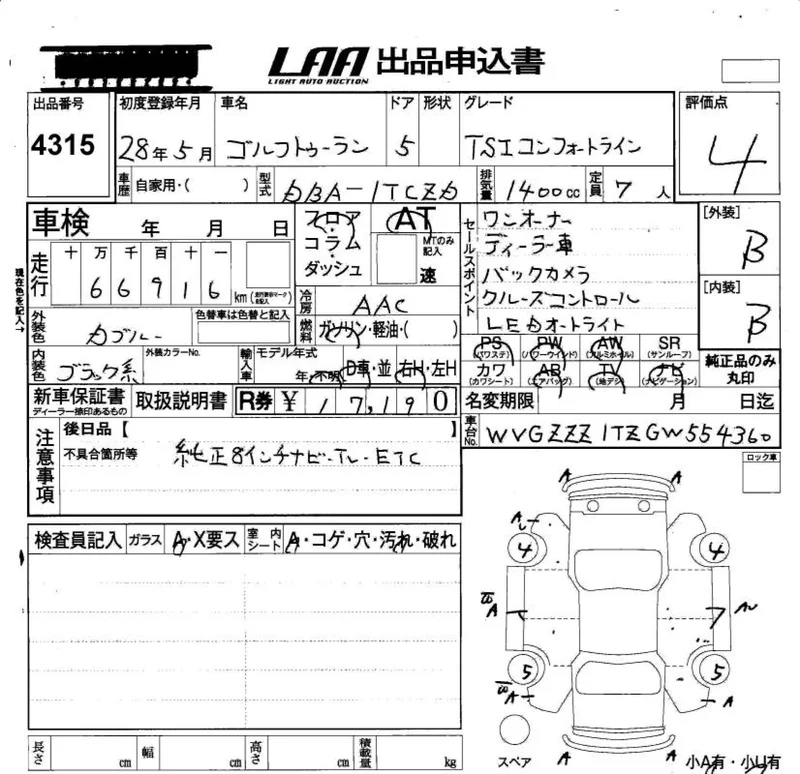 LAA 出品申込書
LIGHT AUTO AUCTION
出品番号 初度登録年月 車名 ドア 形状 グレード 評価点
4315 28年5月 ゴルフトゥーラン 5 TSIコンフォートライン 4
車歴 自家用・( ) 型式 DBA-1TCZD 排気量 1400cc 定員 7人
車検 年 月 日 フロア・コラム・ダッシュ AT MTのみ記入 速
現在色を記入→
走行 十 万 千 百 十 一
6 6 9 1 6 km
冷房 AAC
外装色 カブルー 色替車は色替と記入 燃料 ガソリン・軽油・( )
内装色 ブラック系 外装カラーNo. 輸入車 モデル年式 年・不明 D車・並 右H・左H
セールスポイント
ワンオーナー
ディーラー車
バックカメラ
クルーズコントロール
LEDオートライト
[外装] B
[内装] B
PS (パワステ) PW (パワーウインド) AW (アルミホイル) SR (サンルーフ)
カワ (カワシート) AB (エアバッグ) TV (地デジ) ナビ (ナビゲーション)
純正品のみ丸印
新車保証書 ディーラー捺印あるもの 取扱説明書 R券 ¥ 17,190
名変期限 月 日迄
車台No. WVGZZZ1TZGW554360
注意事項
後日品【 】
不具合箇所等 純正8インチナビ-TV-ETC
ロック車
検査員記入 ガラス A・X要ス 室内シート A・コゲ・穴・汚れ・破れ
A A
A 4 4
A A
5 5
A A
A A
スペア 小A有・小U有
長さ cm 幅 cm 高さ cm 積載量 kg